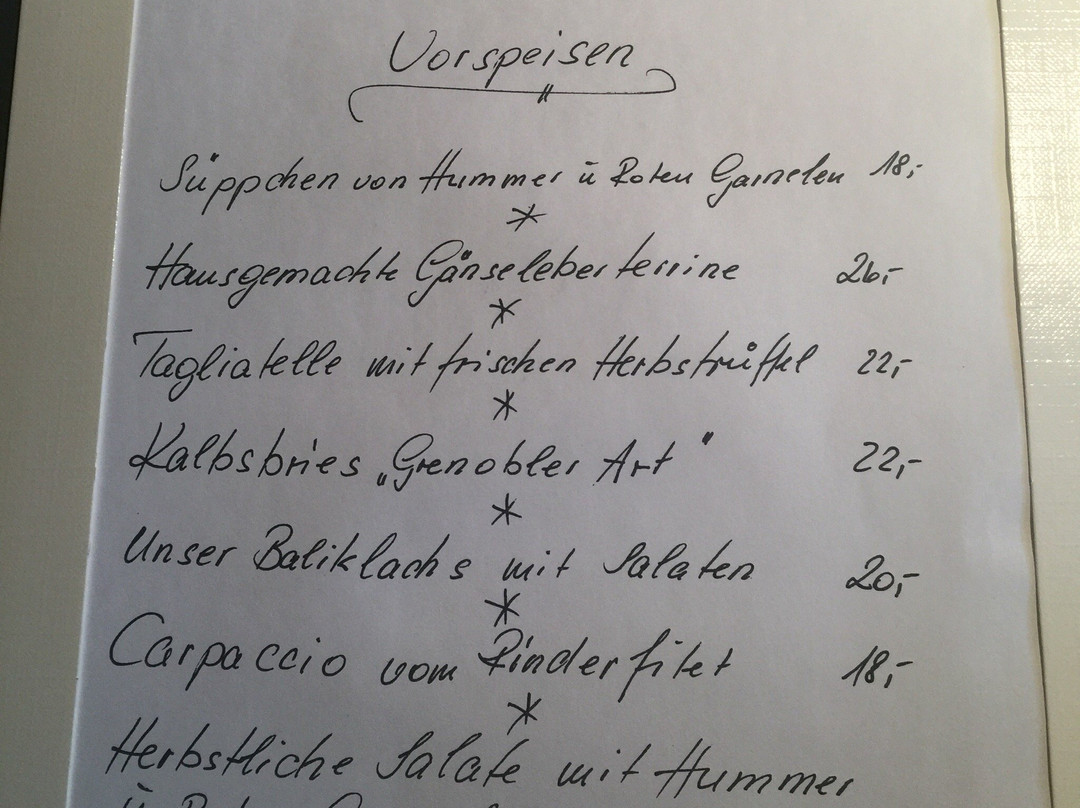 Vorspeisen
Süppchen von Hummer ü Roten Garnelen 18,-
*
Hausgemachte Gänseleberterrine 26,-
*
Tagliatelle mit frischen Herbsttrüffel 22,-
*
Kalbsbries „Grenobler Art" 22,-
*
Unser Baliklachs mit Salaten 20,-
*
Carpaccio vom Rinderfilet 18,-
*
Herbstliche Salate mit Hummer
ü Roten